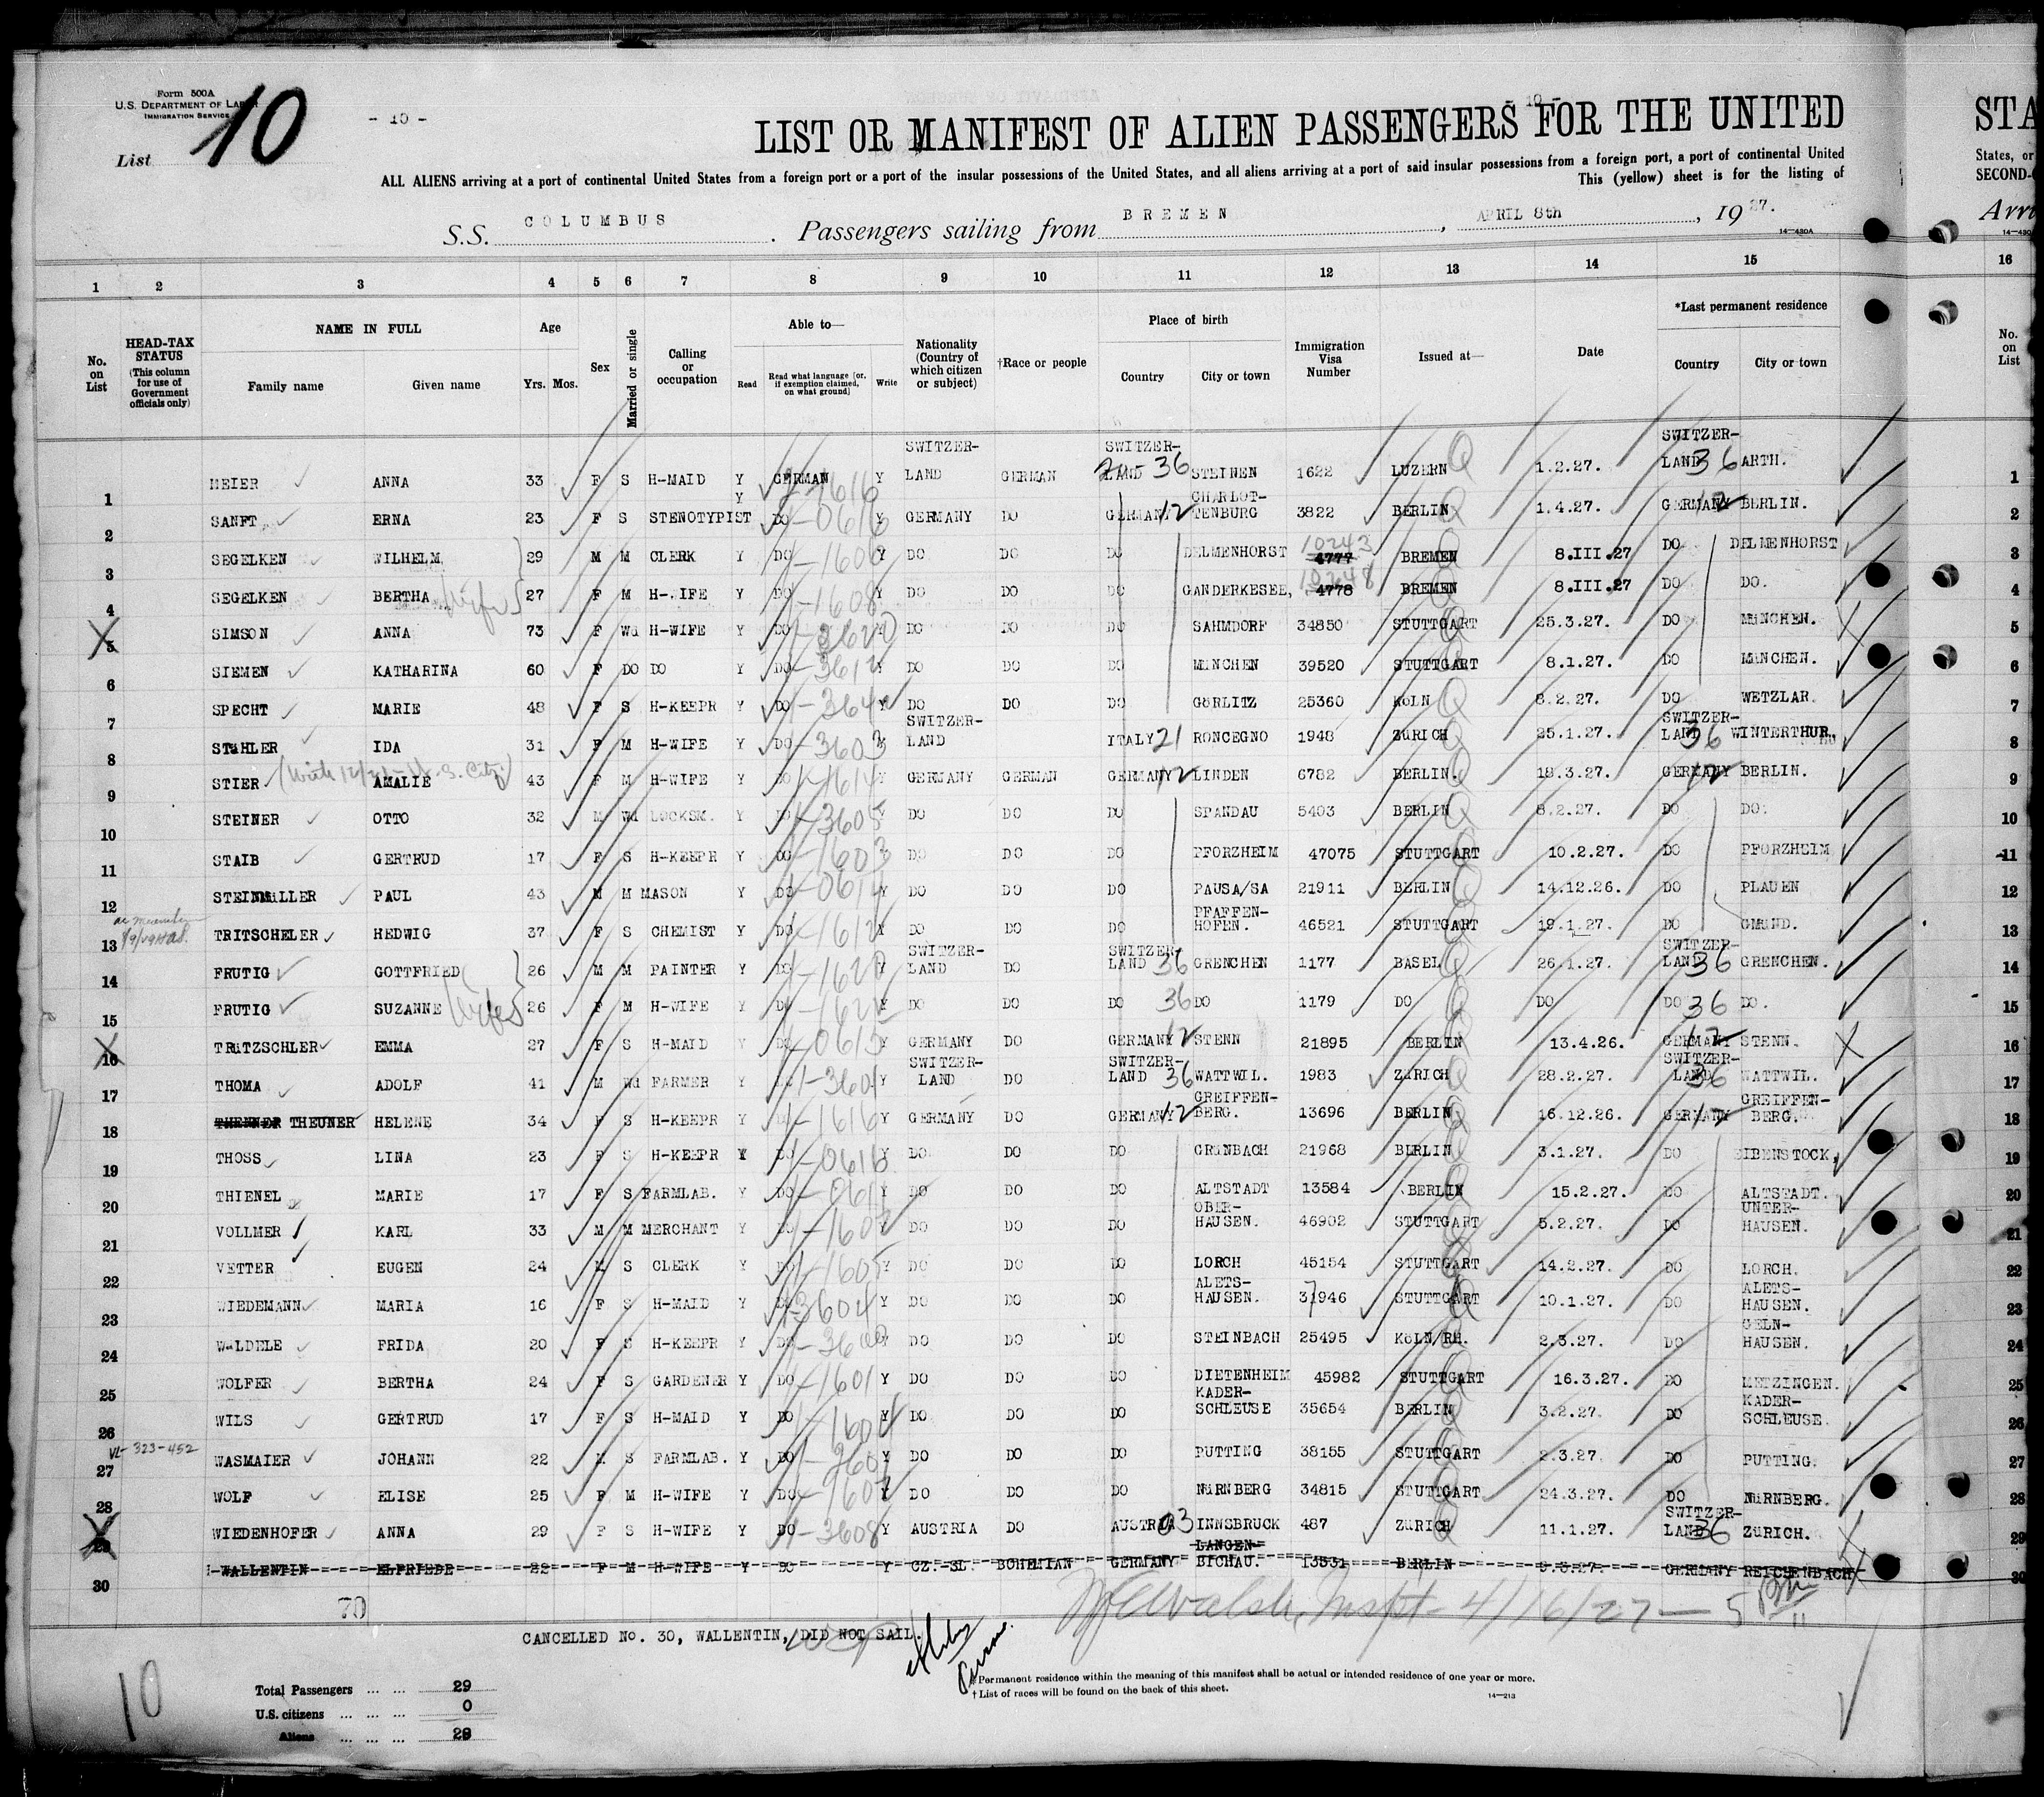 Form 500A
U.S. DEPARTMENT OF LABOR
IMMIGRATION SERVICE
List 10
- 10 -
- 10 -
LIST OR MANIFEST OF ALIEN PASSENGERS FOR THE UNITED
STA
ALL ALIENS arriving at a port of continental United States from a foreign port or a port of the insular possessions of the United States, and all aliens arriving at a port of said insular possessions from a foreign port, a port of continental United
States, or
This (yellow) sheet is for the listing of
SECOND-
S.S. COLUMBUS. Passengers sailing from BREMEN, APRIL 8th, 1927.
Arri
14—430A
14—430
1 2 3 4 5 6 7 8 9 10 11 12 13 14 15 16
No. on List
HEAD-TAX STATUS (This column for use of Government officials only)
NAME IN FULL
Family name
Given name
Age
Yrs. Mos.
Sex
Married or single
Calling or occupation
Able to—
Read
Read what language [or, if exemption claimed, on what ground]
Write
Nationality (Country of which citizen or subject)
†Race or people
Place of birth
Country
City or town
Immigration Visa Number
Issued at—
Date
*Last permanent residence
Country
City or town
No. on List
1 MEIER ANNA 33 F S H-MAID Y GERMAN 1616 Y SWITZER-LAND GERMAN SWITZER-LAND 36 STEINEN 1622 LUZERN 1.2.27. SWITZER-LAND 36 ARTH. 1
2 SANFT ERNA 23 F S STENOTYPIST Y DO 0616 Y GERMANY DO GERMANY 12 CHARLOT-TENBURG 3822 BERLIN 1.4.27. GERMANY 12 BERLIN. 2
3 SEGELKEN WILHELM 29 M M CLERK Y DO 1606 Y DO DO DO DELMENHORST 4777 10243 BREMEN 8.III.27 DO DELMENHORST 3
4 SEGELKEN BERTHA wife 27 F M H-WIFE Y DO 1608 Y DO DO DO GANDERKESEE, 4778 10248 BREMEN 8.III.27 DO DO. 4
5 SIMSON ANNA 73 F Wd H-WIFE Y DO 3620 Y DO DO DO SAHMDORF 34850 STUTTGART 25.3.27. DO MüNCHEN. 5
6 SIEMEN KATHARINA 60 F DO DO Y DO 3612 Y DO DO DO MüNCHEN 39520 STUTTGART 8.1.27. DO MüNCHEN. 6
7 SPECHT MARIE 48 F S H-KEEPR Y DO Y DO DO DO GöRLITZ 25360 KöLN 8.2.27. DO WETZLAR. 7
8 STäHLER IDA 31 F M H-WIFE Y DO 3603 Y SWITZER-LAND ITALY 21 RONCEGNO 1948 ZüRICH 25.1.27. SWITZER-LAND 36 WINTERTHUR, 8
9 STIER AMALIE 43 F M H-WIFE Y DO 1614 Y GERMANY GERMAN GERMANY 12 LINDEN 6782 BERLIN. 18.3.27. GERMANY 12 BERLIN. 9
10 STEINER OTTO 32 M Wd LOCKSM. Y DO 3605 Y DO DO DO SPANDAU 5403 BERLIN 8.2.27. DO DO. 10
11 STAIB GERTRUD 17 F S H-KEEPR Y DO 1603 Y DO DO DO PFORZHEIM 47075 STUTTGART 10.2.27. DO PFORZHEIM 11
12 STEINMüLLER PAUL 43 M M MASON Y DO 0614 Y DO DO DO PAUSA/SA 21911 BERLIN 14.12.26. DO PLAUEN 12
13 TRITSCHELER HEDWIG 37 F S CHEMIST Y DO 1612 Y DO DO DO PFAFFEN-HOFEN. 46521 STUTTGART 19.1.27. DO GMüND. 13
14 FRUTIG GOTTFRIED 26 M M PAINTER Y DO 1620 Y SWITZER-LAND DO SWITZER-LAND 36 GRENCHEN 1177 BASEL 26.1.27. SWITZER-LAND 36 GRENCHEN. 14
15 FRUTIG SUZANNE wife 26 F M H-WIFE Y DO Y DO DO DO 36 DO 1179 DO DO DO 36 DO. 15
16 TRüTZSCHLER EMMA 27 F S H-MAID Y DO 0615 Y GERMANY DO GERMANY 12 STENN 21895 BERLIN 13.4.26. GERMANY 12 STENN. 16
17 THOMA ADOLF 41 M Wd FARMER Y DO 3601 Y SWITZER-LAND DO SWITZER-LAND 36 WATTWIL. 1983 ZüRICH 28.2.27. SWITZER-LAND 36 WATTWIL. 17
18 THENNER THEUNER HELENE 34 F S H-KEEPR Y DO 1616 Y GERMANY DO GERMANY 12 GREIFFEN-BERG. 13696 BERLIN 16.12.26. GERMANY 12 GREIFFEN-BERG. 18
19 THOSS LINA 23 F S H-KEEPR Y DO 0616 Y DO DO DO GRüNBACH 21968 BERLIN 3.1.27. DO EIBENSTOCK, 19
20 THIENEL MARIE 17 F S FARMLAB. Y DO 0611 Y DO DO DO ALTSTADT 13584 BERLIN 15.2.27. DO ALTSTADT. 20
21 VOLLMER KARL 33 M M MERCHANT Y DO 1607 Y DO DO DO OBER-HAUSEN. 46902 STUTTGART 5.2.27. DO UNTER-HAUSEN. 21
22 VETTER EUGEN 24 M S CLERK Y DO 1605 Y DO DO DO LORCH 45154 STUTTGART 14.2.27. DO LORCH. 22
23 WIEDEMANN MARIA 16 F S H-MAID Y DO 3604 Y DO DO DO ALETS-HAUSEN. 37946 STUTTGART 10.1.27. DO ALETS-HAUSEN. 23
24 WäLDELE FRIDA 20 F S H-KEEPR Y DO 3600 Y DO DO DO STEINBACH 25495 KöLN/RH. 2.3.27. DO GELN-HAUSEN. 24
25 WOLFER BERTHA 24 F S GARDENER Y DO 1601 Y DO DO DO DIETENHEIM 45982 STUTTGART 16.3.27. DO METZINGEN. 25
26 WILS GERTRUD 17 F S H-MAID Y DO 1600 Y DO DO DO KADER-SCHLEUSE 35654 BERLIN 3.2.27. DO KADER-SCHLEUSE. 26
VL-323-452
27 WASMAIER JOHANN 22 M S FARMLAB. Y DO 3601 Y DO DO DO PUTTING 38155 STUTTGART 2.3.27. DO PUTTING. 27
28 WOLF ELISE 25 F M H-WIFE Y DO 1607 Y DO DO DO NüRNBERG 34815 STUTTGART 24.3.27. DO NüRNBERG. 28
29 WIEDENHOFER ANNA 29 F S H-WIFE Y DO 3608 Y AUSTRIA DO AUSTRIA 03 INNSBRUCK 487 ZüRICH 11.1.27. SWITZER-LAND 36 ZüRICH. 29
30 WALLENTIN ELFRIEDE 22 F M H-WIFE Y DO Y CZ.-SL. BOHEMIAN GERMANY LANGEN-BICHAU. 13531 BERLIN 9.3.27. GERMANY REICHENBACH 30
70
Walsh, Inspt - 4/16/27 — 5
CANCELLED NO. 30, WALLENTIN, DID NOT SAIL.
10
Total Passengers ... ... 29
U.S. citizens ... ... ... 0
Aliens ... ... ... 29
*Permanent residence within the meaning of this manifest shall be actual or intended residence of one year or more.
†List of races will be found on the back of this sheet.
14—213